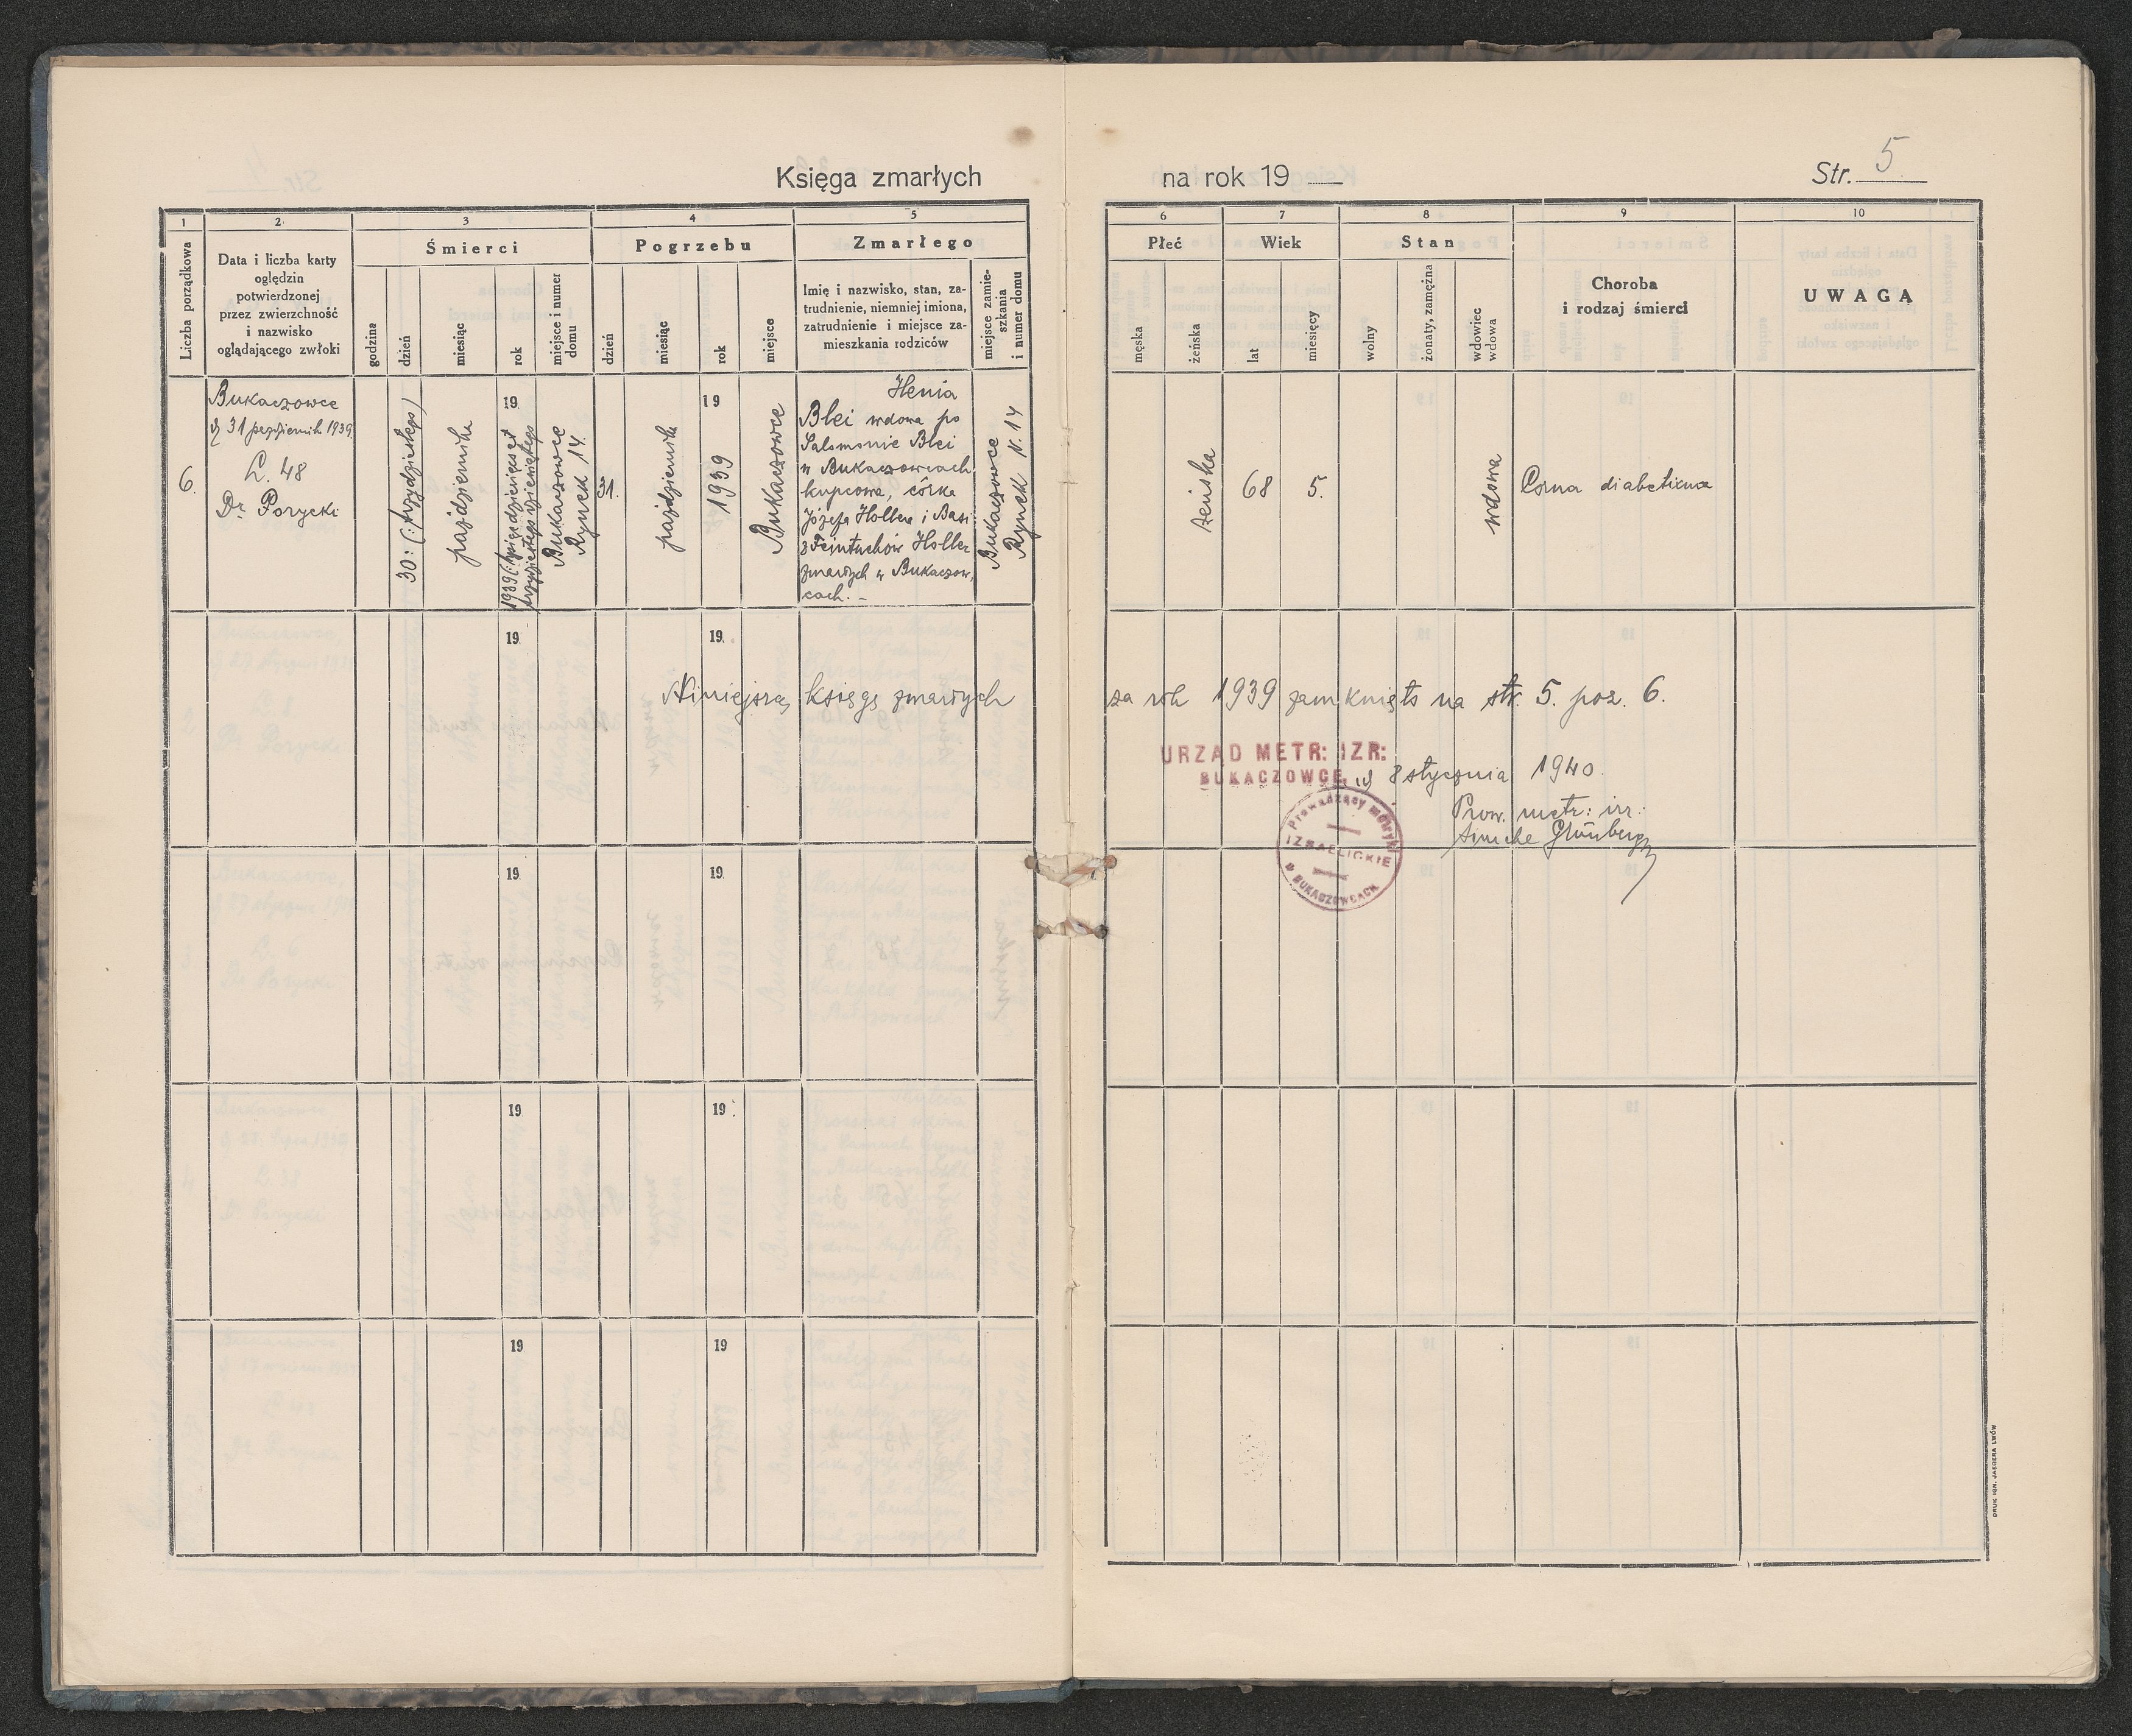 Księga zmarłych
na rok 19
Str. 5
1
2
3
4
5
6
7
8
9
10
Liczba porządkowa
Data i liczba karty
oględzin
potwierdzonej
przez zwierzchność
i nazwisko
oglądającego zwłoki
Śmierci
godzina
dzień
miesiąc
rok
miejsce i numer
domu
Pogrzebu
dzień
miesiąc
rok
miejsce
Zmarłego
Imię i nazwisko, stan, za-
trudnienie, niemniej imiona,
zatrudnienie i miejsce za-
mieszkania rodziców
miejsce zamie-
szkania
i numer domu
Płeć
męska
żeńska
Wiek
lat
miesięcy
Stan
wolny
żonaty, zamężna
wdowiec
wdowa
Choroba
i rodzaj śmierci
UWAGA
6.
Bukaczowce
31 październik 1939
L. 48
Dr Porycki
30.
października
19
1939
Bukaczowce
Rynek 14.
31.
października
19
1939
Bukaczowce
Henia
Blei wdowa po
Salomonie Blei
w Bukaczowcach
kupcowa, córka
Józefa Hollera i Basi
z Feintuchów Holler
zmarłych w Bukaczow,
cach. –
Bukaczowce
Rynek N. 14
żeńska
68
5.
wdowa
Coma diabeticum
19
19
Niniejszą księgę zmarłych
za rok 1939 zamknięto na str. 5. poz. 6.
URZĄD METR: IZR:
BUKACZOWCE
8 stycznia 1940.
Prow. metr: izr:
Grünberg
Prowadzący metryki
IZRAELICKIE
w BUKACZOWCACH
19
19
19
19
19
19
DRUK IGN. JAEGERA LWÓW